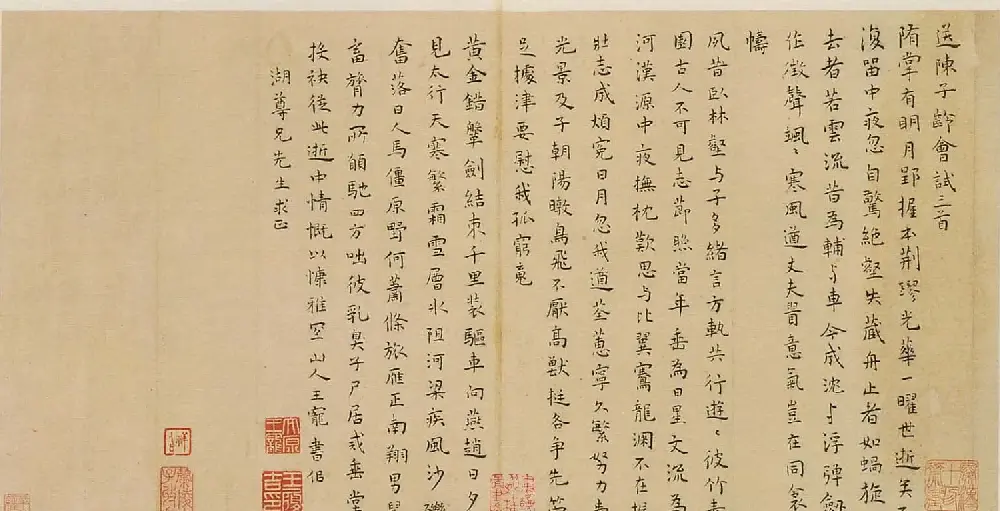 送陳子齡會試三首
隋掌有明月郢握本荆璆光華一曜世逝矣不
復留中夜忽自驚絶壑失藏舟止者如蝸旋
去者若雲流昔為輔與車今成沈與浮彈劍
作徵聲颯〻寒風遒丈夫習意氣豈在同衾
幬
夙昔臥林壑與子多緒言方軌共行遊〻彼竹素
園古人不可見志節照當年垂為日星文流為
河漢源中夜撫枕歎思與比翼騫龍淵不在握
壯志成煩寃日月忽我遒荃蕙寧久繁努力青
光景及子朝陽暾鳥飛不厭高獸挺各争先策
足據津要慰我孤窮䰟
黃金錯鞶劍結束千里装驅車向燕趙日夕
見太行天寒繁霜雪層氷阻河梁疾風沙礫
奮落日人馬僵原野何蕭條旅雁正南翔男兒
富膂力所願馳四方咄彼乳臭子尸居戒垂堂
挨袂從此逝中情慨以慷雅宜山人王寵書似
湖尊兄先生求正